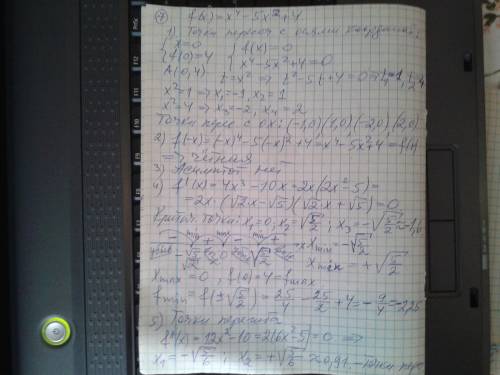 ⑦ f(x) = x⁴ - 5x² + 4
1) Точки пересеч с осями координат:
{ x=0 { f(x)=0
{ f(0)=4 { x⁴-5x²+4=0
A(0,4) t=x² ⇒ t²-5t+4=0 ⇒ t₁=1, t₂=4
x²=1 ⇒ x₁=-1, x₂=1
x²=4 ⇒ x₃=-2, x₄=2
Точки перес с ox: (-1,0)(1,0)(-2,0)(2,0)
2) f(-x)=(-x)⁴-5(-x)²+4=x⁴-5x²+4=f(x)
⇒ чётная
3) Асимптот нет
4) f'(x)=4x³-10x=2x(2x²-5)=
=2x(√2x-√5)(√2x+√5)=0
Критич. точки: x₁=0, x₂=√5/2; x₃=-√5/2≈-1,6
- min + max - min + x xmin=-√5/2
убыв -√5/2 0 √5/2 xmin=+√5/2
xmax=0, f(0)=4=fmax
fmin=f(±√5/2)=25/4-25/2+4=-9/4=-2,25
5) Точки перегиба
f''(x)=12x²-10=2(6x²-5)=0 ⇒
x₁=-√5/6; x₂=+√5/6≈0,91 - точки пер